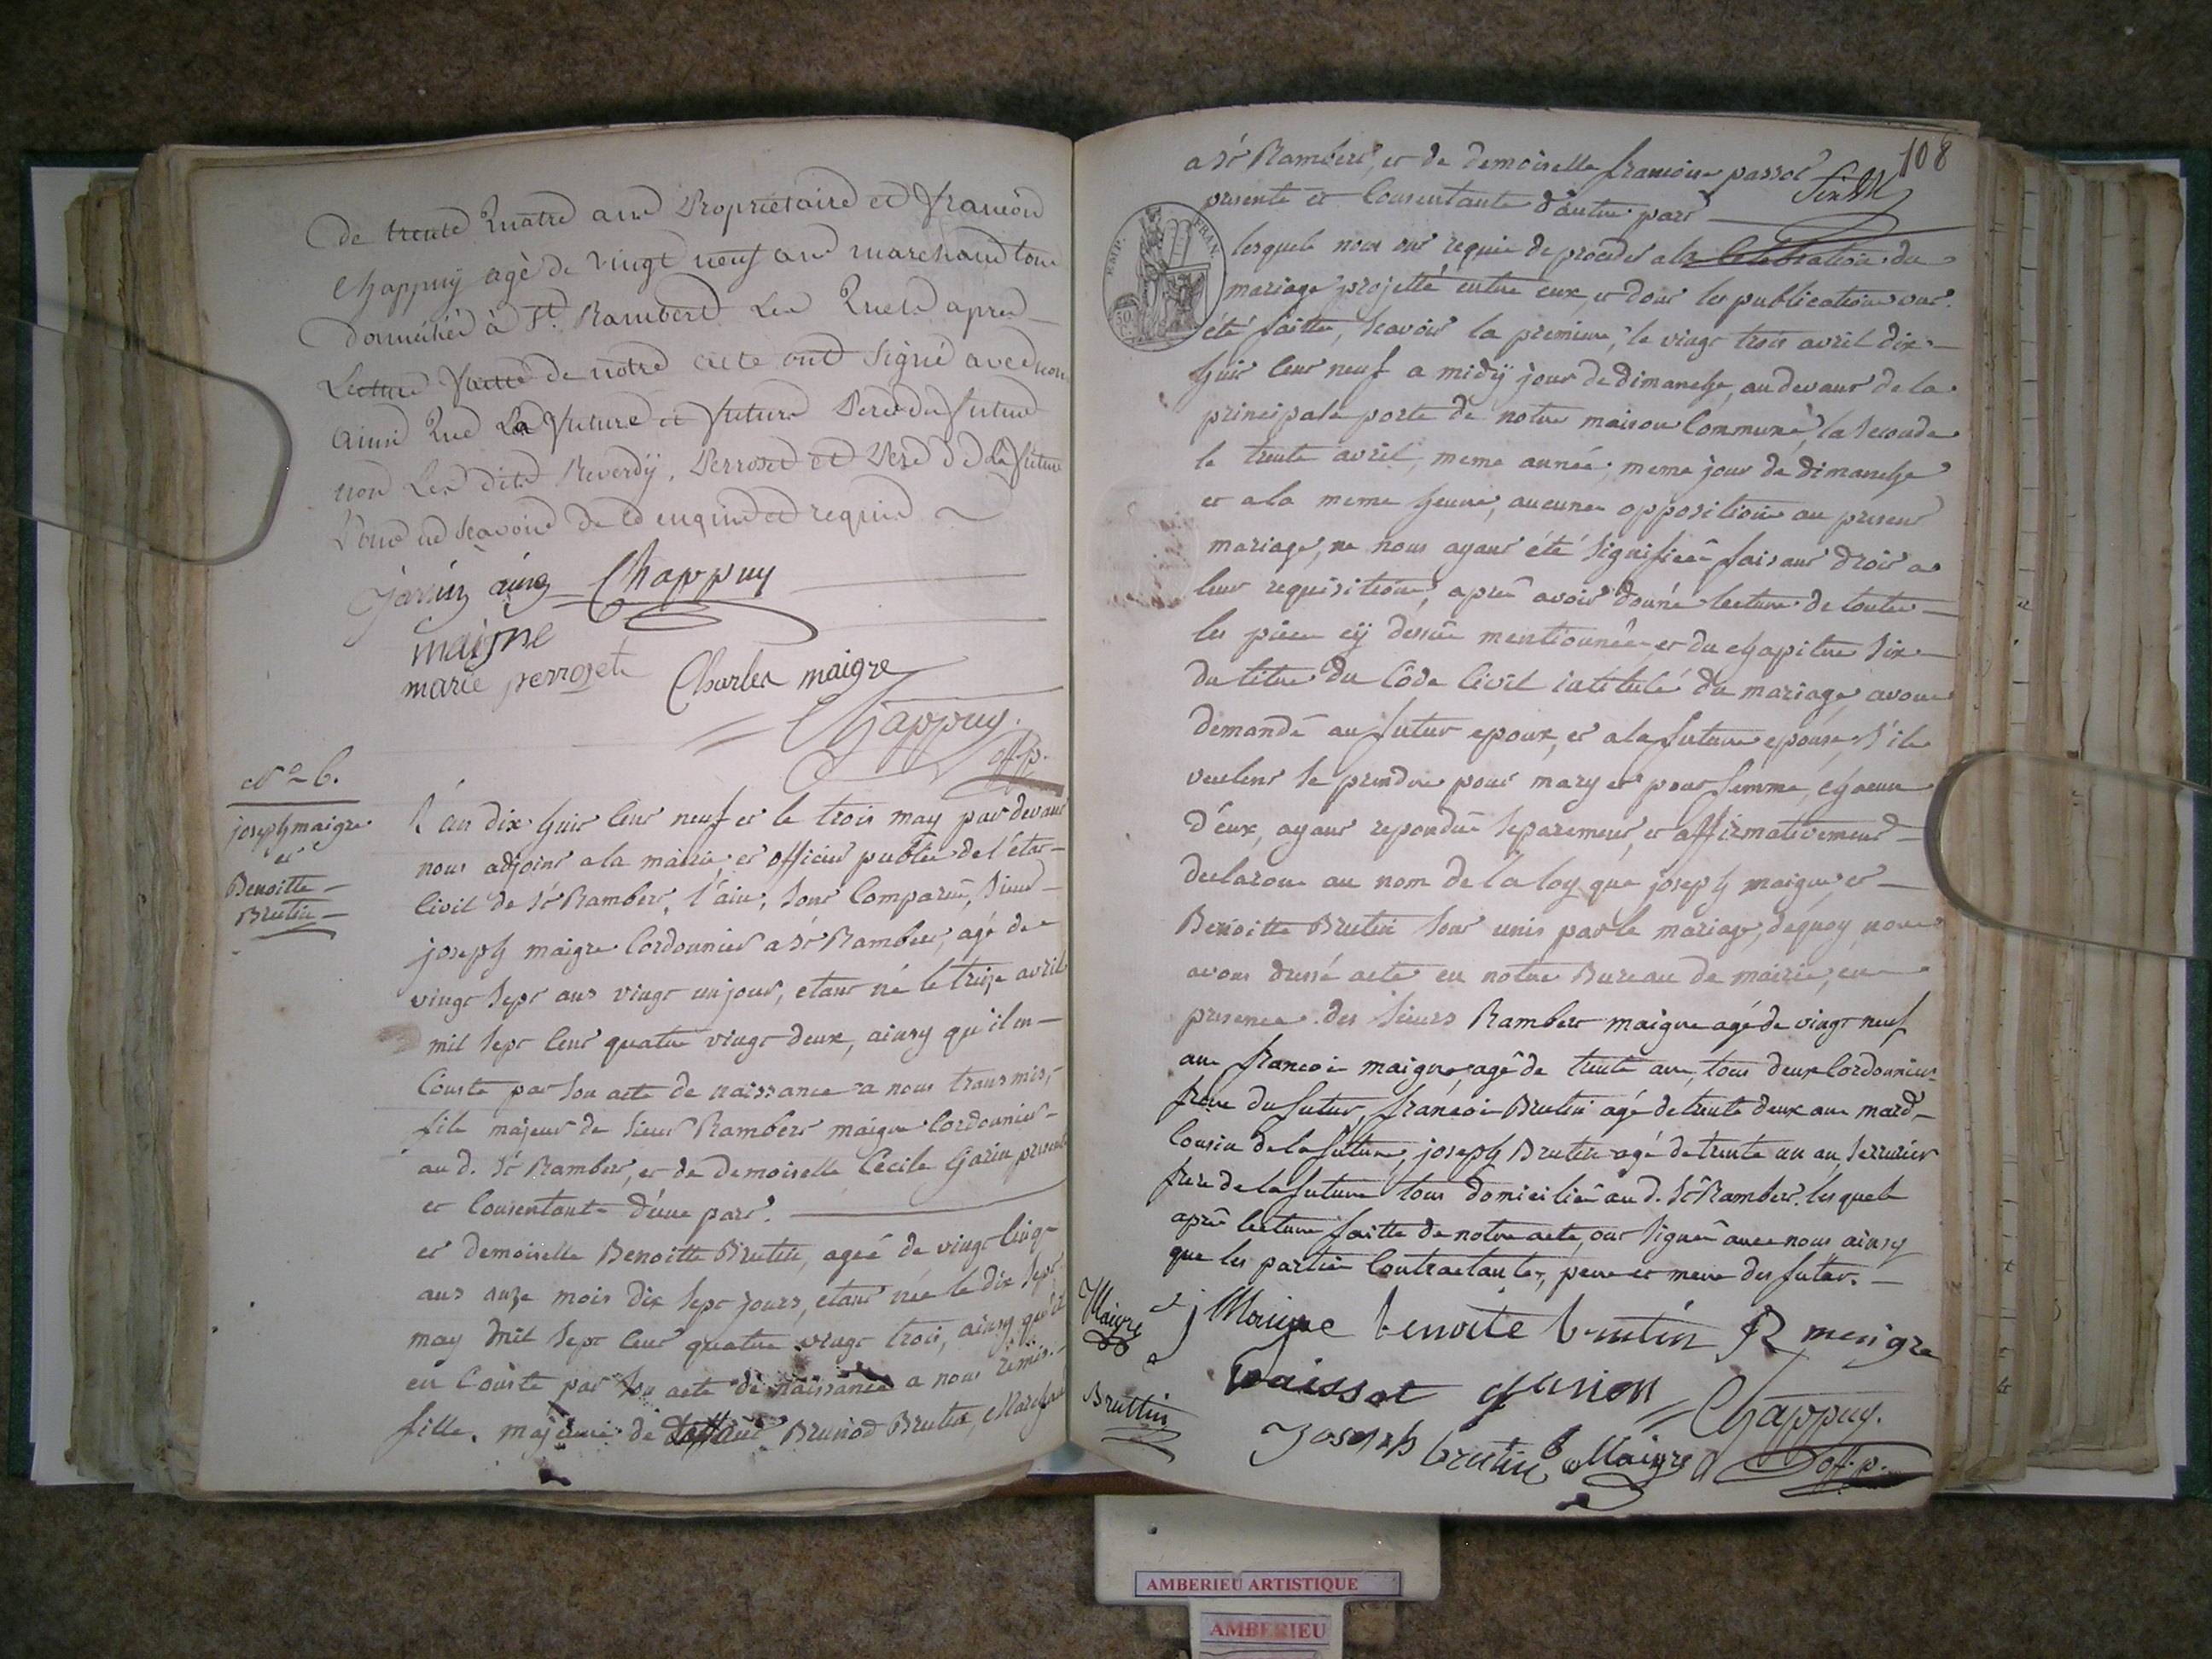 de trente quatre ans Propriétaire et françois
Chappuy agé de vingt neuf ans marchand tous
domiciliés à St. Rambert Les quels apres
Lecture faitte de notre acte ont signé avec nous
ainsi que La future et futur Pere du futur
non Les dits Reverdÿ, Perroset et Pere de La future
Pour ne scavoir de ce enquis et requis
jarin ainé Chappuy
maigre
marie perroset Charles maigre
Chappuy.
off. p.
N° 26.
joseph maigre
et
Benoitte
Brutin
L'an dix huit cent neuf et le trois may par devant
nous adjoint a la mairie et officier public de l'état
civil de St Rambert, l'ain, sont comparus, sieur
joseph maigre cordonnier a St Rambert, agé de
vingt sept ans vingt un jour, etant né le treize avril
mil sept cent quatre vingt deux, ainsy qu'il en
conste par son acte de naissance a nous transmis,
fils majeur de sieur Rambert maigre cordonnier
au d. St Rambert, et de demoiselle Cecile Garin presents
et consentants d'une part.
et demoiselle Benoitte Brutin, ageé de vingt cinq
ans onze mois dix sept jours, etant née le dix sept
may mil sept cent quatre vingt trois, ainsy qu'il
en conste par son acte de naissance a nous remis.
fille majeure de Brutin, Marchand
108
a St Rambert, et de demoiselle francoise passot
presente et consentante d'autre part
EMP. FRAN.
50
lesquels nous ont requis de proceder a la celebration du
mariage projetté entre eux, et dont les publications ont
été faittes, scavoir la premiere, le vingt trois avril dix
huit cent neuf a midÿ jour de dimanche, au devant de la
principale porte de notre maison commune, la seconde
le trente avril, meme année, meme jour de dimanche
et a la meme heure, aucunes oppositions au present
mariage, ne nous ayant été signifiées faisant droit a
leur requisition, après avoir donné lecture de toutes
les pieces cÿ dessus mentionnées et du chapitre six
du titre du Côde Civil intitulé du mariage avons
demandé au futur epoux, et a la future epouse s'ils
veulent se prendre pour mary et pour femme, chacun
d'eux, ayant repondus separement, et affirmativement
declarons au nom de la loy que joseph maigre et
Benoitte Brutin sont unis par le mariage, dequoy nous
avons dressé acte en notre Bureau de mairie, en
presence des sieurs Rambert maigre agé de vingt neuf
ans françois maigre, agé de trente ans, tous deux cordonniers
freres du futur, françois Brutin agé de trente deux ans mard.
cousin de la future, joseph Brutin agé de trente un an, serrurier
frere de la future tous domiciliés au d. St Rambert. lesquels
après lecture faitte de notre acte, ont signés avec nous ainsy
que les parties contractantes, pere et mere des futurs.
Maigre
j Maigre benoite brutin R maigre
Bruttin
Chappuy.
Joseph brutin Maigre
off. p.
AMBERIEU ARTISTIQUE
AMBERIEU